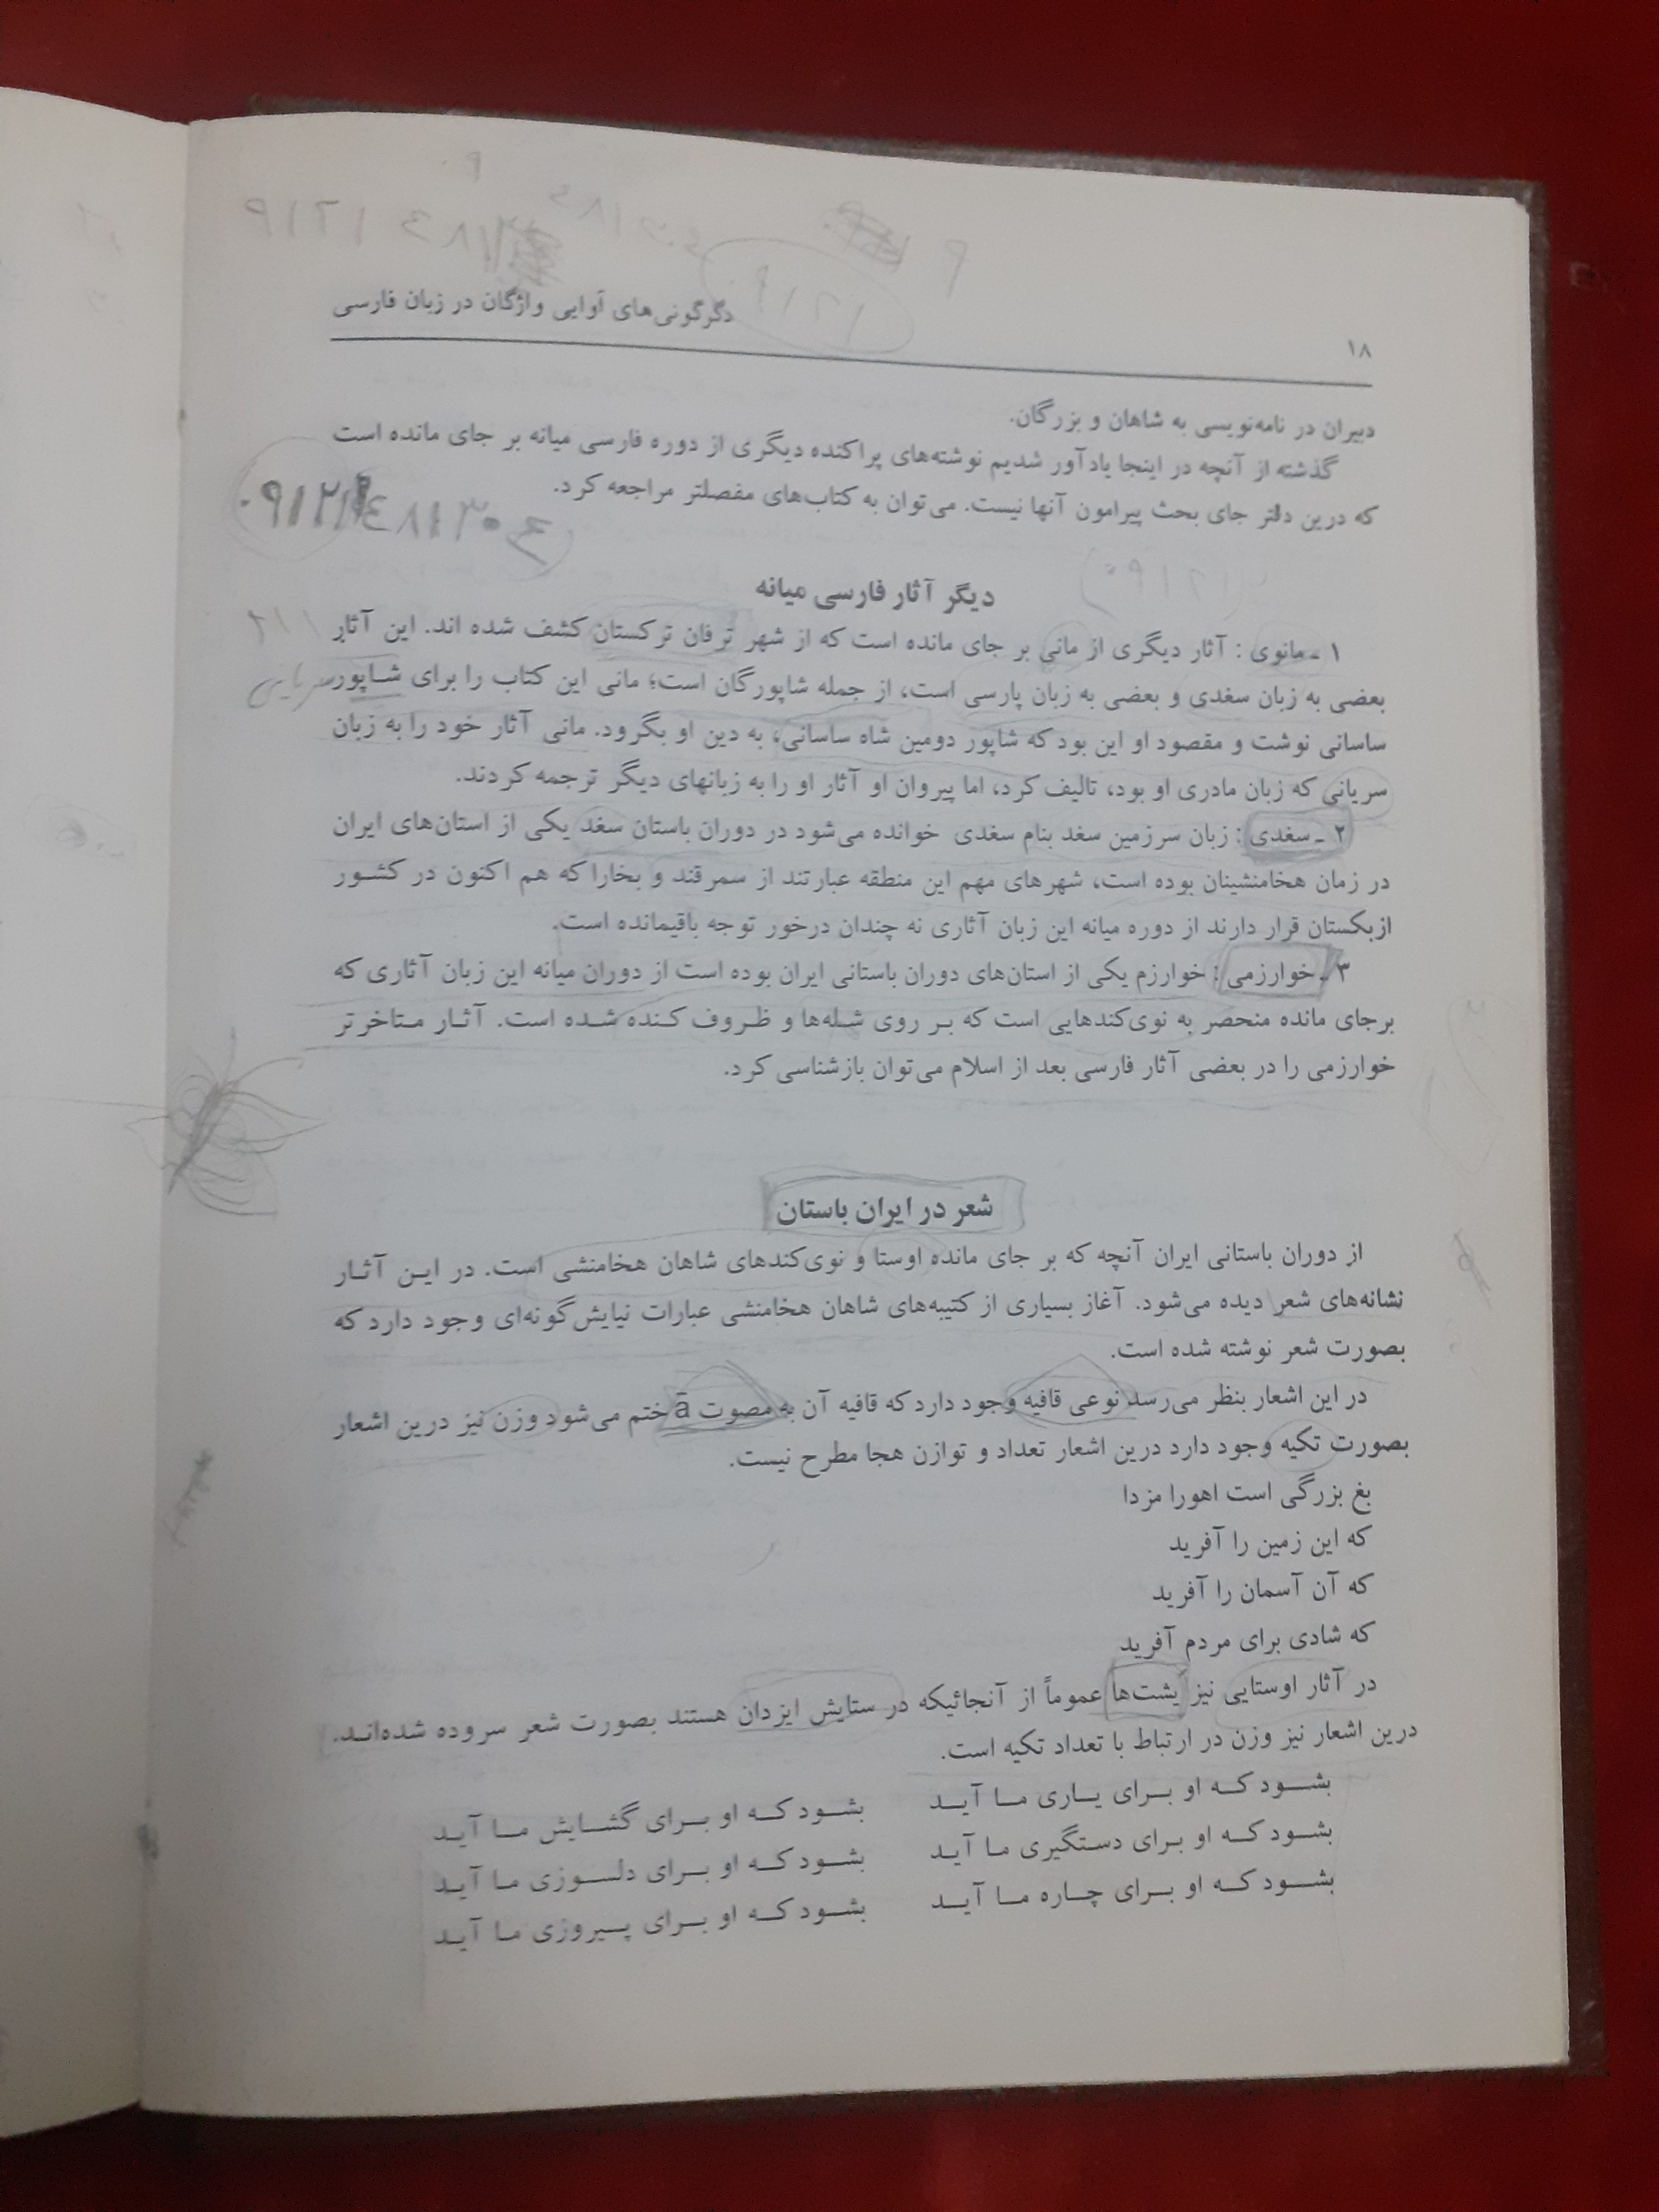 ۱۸
دگرگونی‌های آوایی واژگان در زبان فارسی
دبیران در نامه‌نویسی به شاهان و بزرگان.
گذشته از آنچه در اینجا یادآور شدیم نوشته‌های پراکنده دیگری از دوره فارسی میانه بر جای مانده است
که درین دفتر جای بحث پیرامون آنها نیست. می‌توان به کتاب‌های مفصلتر مراجعه کرد.
دیگر آثار فارسی میانه
۱ ـ مانوی : آثار دیگری از مانی بر جای مانده است که از شهر ترفان ترکستان کشف شده اند. این آثار
بعضی به زبان سغدی و بعضی به زبان پارسی است، از جمله شاپورگان است؛ مانی این کتاب را برای شاپور
سریانی
ساسانی نوشت و مقصود او این بود که شاپور دومین شاه ساسانی، به دین او بگرود. مانی آثار خود را به زبان
سریانی که زبان مادری او بود، تالیف کرد، اما پیروان او آثار او را به زبانهای دیگر ترجمه کردند.
۲ ـ سغدی : زبان سرزمین سغد بنام سغدی خوانده می‌شود در دوران باستان سغد یکی از استان‌های ایران
در زمان هخامنشینان بوده است، شهرهای مهم این منطقه عبارتند از سمرقند و بخارا که هم اکنون در کشور
ازبکستان قرار دارند از دوره میانه این زبان آثاری نه چندان درخور توجه باقیمانده است.
۳ ـ خوارزمی : خوارزم یکی از استان‌های دوران باستانی ایران بوده است از دوران میانه این زبان آثاری که
برجای مانده منحصر به نوی‌کندهایی است که بر روی شله‌ها و ظروف کنده شده است. آثار متاخرتر
خوارزمی را در بعضی آثار فارسی بعد از اسلام می‌توان بازشناسی کرد.
شعر در ایران باستان
از دوران باستانی ایران آنچه که بر جای مانده اوستا و نوی‌کندهای شاهان هخامنشی است. در این آثار
نشانه‌های شعر دیده می‌شود. آغاز بسیاری از کتیبه‌های شاهان هخامنشی عبارات نیایش‌گونه‌ای وجود دارد که
بصورت شعر نوشته شده است.
در این اشعار بنظر می‌رسد نوعی قافیه وجود دارد که قافیه آن به مصوت ā ختم می‌شود وزن نیز درین اشعار
بصورت تکیه وجود دارد درین اشعار تعداد و توازن هجا مطرح نیست.
بغ بزرگی است اهورا مزدا
که این زمین را آفرید
که آن آسمان را آفرید
که شادی برای مردم آفرید
در آثار اوستایی نیز یشت‌ها عموماً از آنجائیکه در ستایش ایزدان هستند بصورت شعر سروده شده‌اند.
درین اشعار نیز وزن در ارتباط با تعداد تکیه است.
بشود که او برای یاری ما آید بشود که او برای گشایش ما آید
بشود که او برای دستگیری ما آید بشود که او برای دلسوزی ما آید
بشود که او برای چاره ما آید بشود که او برای پیروزی ما آید